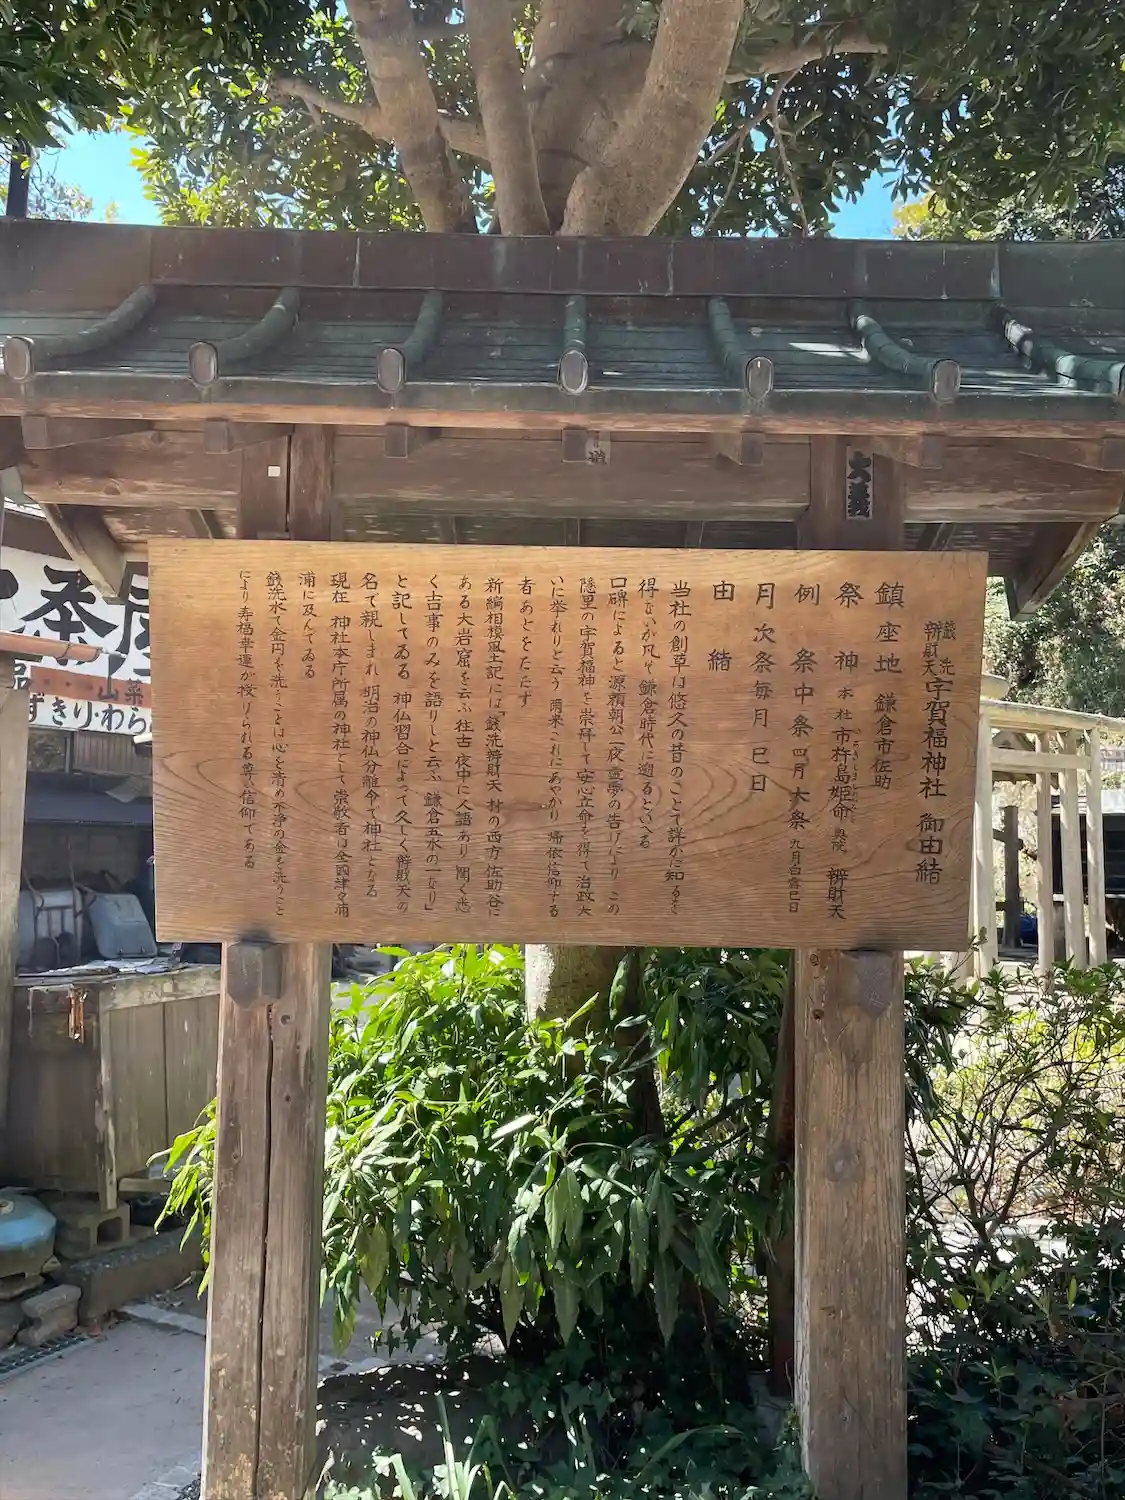 銭洗
辨財天 宇賀福神社 御由緒
鎮座地 鎌倉市佐助
祭神 本社 市杵島姫命 奥院 辨財天
例祭 中祭 四月 大祭 九月白露巳日
月次祭 毎月 巳日
由緒
当社の創草は悠久の昔のことて詳かに知るを
得ないか凡そ鎌倉時代に遡るといへる
口碑によると源頼朝公一夜霊夢の告けにより この
隠里の宇賀福神を崇拜して安心立命を得て治政大
いに挙れりと云う 爾来これにあやかり 帰依信仰する
者あとをたたず
新編相模風土記には「銭洗辨財天 村の西方佐助谷に
ある大岩窟を云ふ 往古夜中に人語あり 聞く悉
く吉事のみを語りしと云ふ 鎌倉五水の一なり」
と記してゐる 神仏習合によって久しく辨財天の
名て親しまれ 明治の神仏分離令て神社となる
現在 神社本庁所属の神社として 崇敬者は全国津々浦
浦に及んてゐる
銭洗水て金円を洗うことは心を清め 不浄の金を洗うこと
により 寿福幸運か授けられる尊い信仰てある
大義
山菜
ずきり・わら